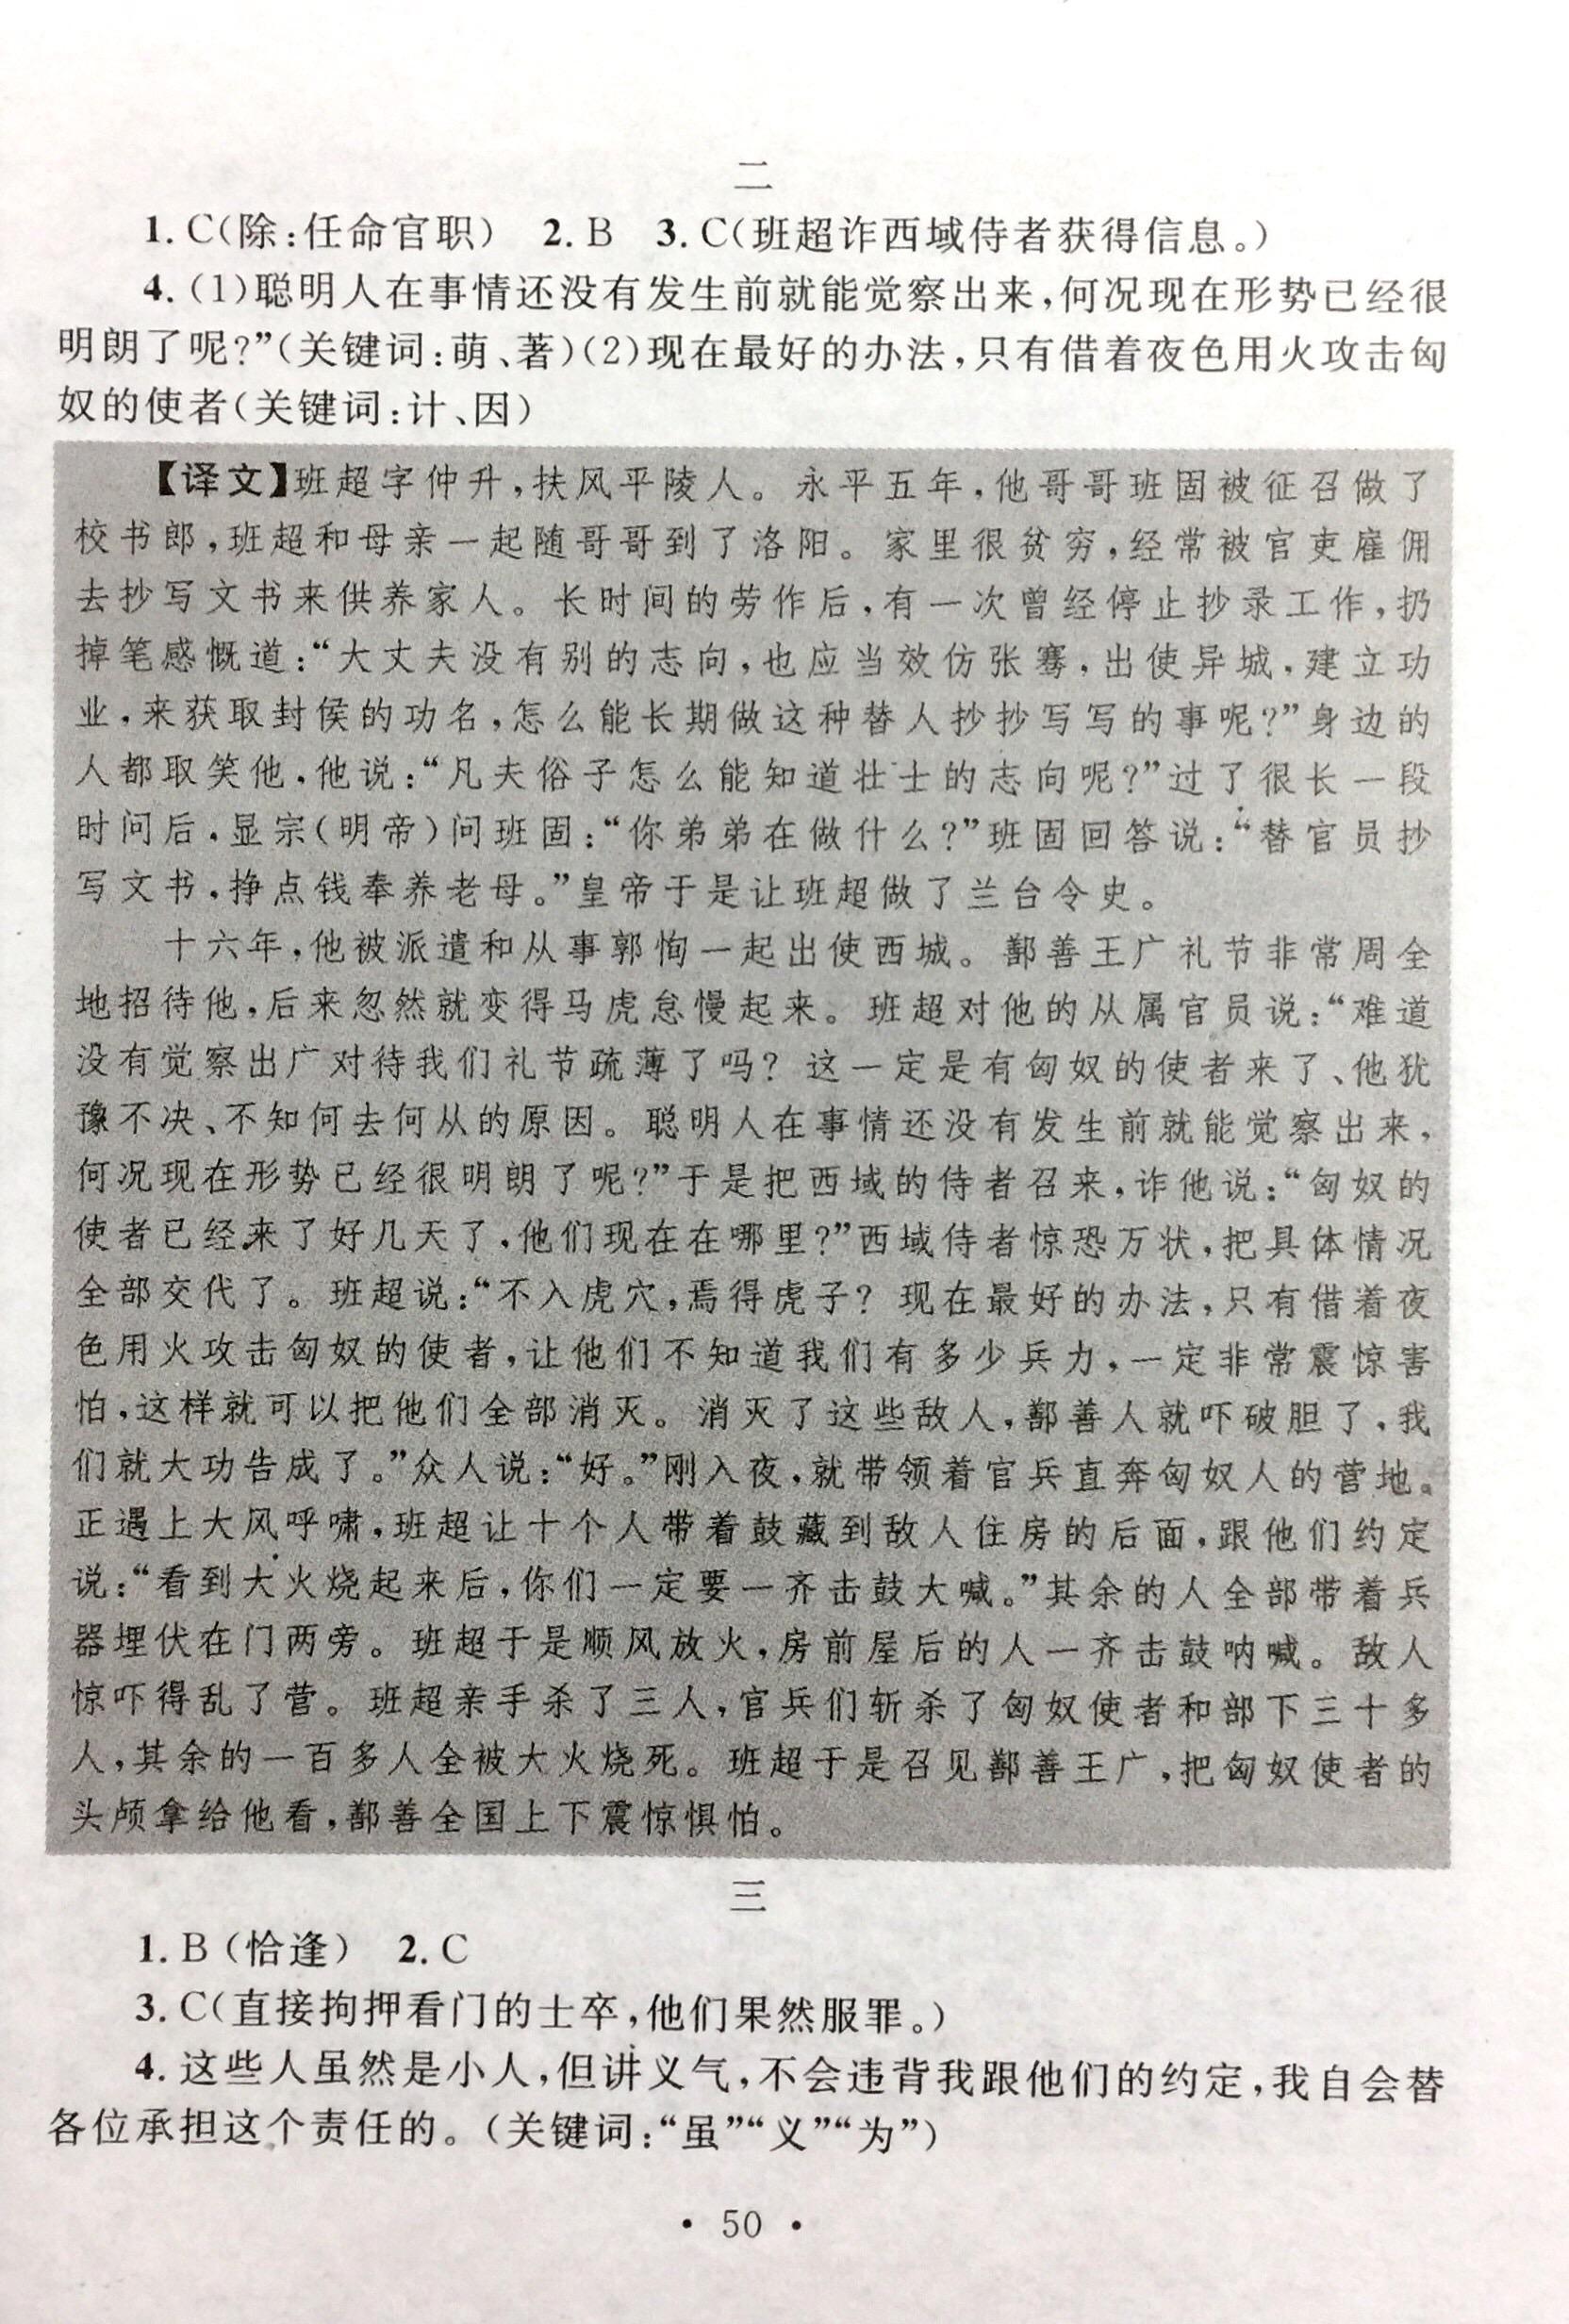 二
1. C(除:任命官职) 2. B 3. C(班超诈西域侍者获得信息。)
4. (1)聪明人在事情还没有发生前就能觉察出来,何况现在形势已经很
明朗了呢?”(关键词:萌、著)(2)现在最好的办法,只有借着夜色用火攻击匈
奴的使者(关键词:计、因)
【译文】班超字仲升,扶风平陵人。永平五年,他哥哥班固被征召做了
校书郎,班超和母亲一起随哥哥到了洛阳。家里很贫穷,经常被官吏雇佣
去抄写文书来供养家人。长时间的劳作后,有一次曾经停止抄录工作,扔
掉笔感慨道:“大丈夫没有别的志向,也应当效仿张骞,出使异城,建立功
业,来获取封侯的功名,怎么能长期做这种替人抄抄写写的事呢?”身边的
人都取笑他,他说:“凡夫俗子怎么能知道壮士的志向呢?”过了很长一段
时间后,显宗(明帝)问班固:“你弟弟在做什么?”班固回答说:“替官员抄
写文书,挣点钱奉养老母。”皇帝于是让班超做了兰台令史。
十六年,他被派遣和从事郭恂一起出使西城。鄯善王广礼节非常周全
地招待他,后来忽然就变得马虎怠慢起来。班超对他的从属官员说:“难道
没有觉察出广对待我们礼节疏薄了吗?这一定是有匈奴的使者来了、他犹
豫不决、不知何去何从的原因。聪明人在事情还没有发生前就能觉察出来,
何况现在形势已经很明朗了呢?”于是把西域的侍者召来,诈他说:“匈奴的
使者已经来了好几天了,他们现在在哪里?”西域侍者惊恐万状,把具体情况
全部交代了。班超说:“不入虎穴,焉得虎子?现在最好的办法,只有借着夜
色用火攻击匈奴的使者,让他们不知道我们有多少兵力,一定非常震惊害
怕,这样就可以把他们全部消灭。消灭了这些敌人,鄯善人就吓破胆了,我
们就大功告成了。”众人说:“好。”刚入夜,就带领着官兵直奔匈奴人的营地。
正遇上大风呼啸,班超让十个人带着鼓藏到敌人住房的后面,跟他们约定
说:“看到大火烧起来后,你们一定要一齐击鼓大喊。”其余的人全部带着兵
器埋伏在门两旁。班超于是顺风放火,房前屋后的人一齐击鼓呐喊。敌人
惊吓得乱了营。班超亲手杀了三人,官兵们斩杀了匈奴使者和部下三十多
人,其余的一百多人全被大火烧死。班超于是召见鄯善王广,把匈奴使者的
头颅拿给他看,鄯善全国上下震惊惧怕。
三
1. B(恰逢) 2. C
3. C(直接拘押看门的士卒,他们果然服罪。)
4. 这些人虽然是小人,但讲义气,不会违背我跟他们的约定,我自会替
各位承担这个责任的。(关键词:“虽”“义”“为”)
• 50 •